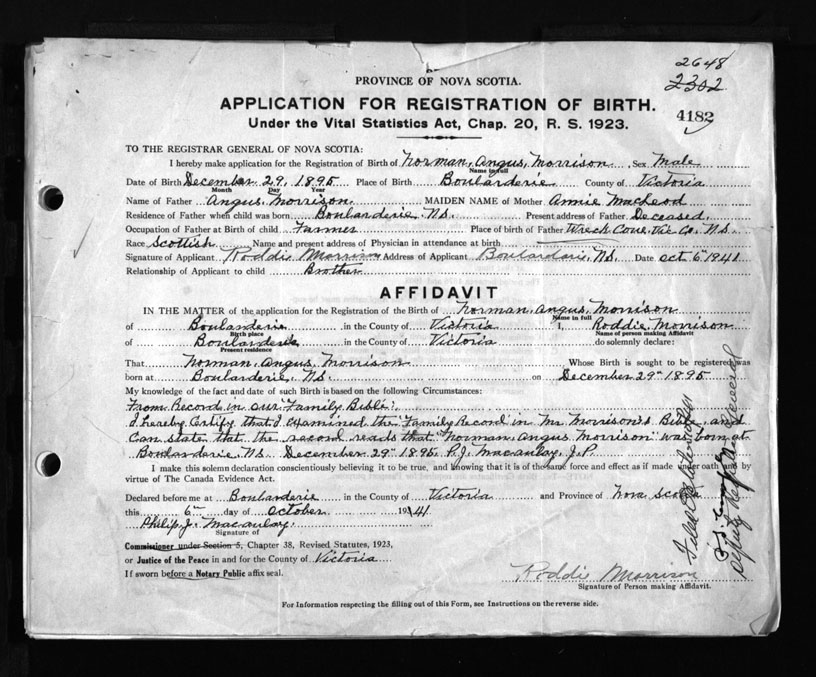 2648
2302
PROVINCE OF NOVA SCOTIA.
APPLICATION FOR REGISTRATION OF BIRTH.
4182
Under the Vital Statistics Act, Chap. 20, R. S. 1923.
TO THE REGISTRAR GENERAL OF NOVA SCOTIA:
I hereby make application for the Registration of Birth of Norman, Angus, Morrison Sex Male
Name in full
Date of Birth December 29, 1895 Place of Birth Boularderie County of Victoria
Month Day Year
Name of Father Angus, Morrison MAIDEN NAME of Mother Annie MacLeod
Residence of Father when child was born Boularderie, N.S. Present address of Father Deceased,
Occupation of Father at Birth of child Farmer Place of birth of Father Wreck Cove, Vic Co, N.S.
Race Scottish Name and present address of Physician in attendance at birth
Signature of Applicant Roddie Morrison Address of Applicant Boulardarie, N.S. Date Oct 6th 1941
Relationship of Applicant to child Brother
AFFIDAVIT
IN THE MATTER of the application for the Registration of the Birth of Norman, Angus, Morrison
Name in full
of Boularderie in the County of Victoria I, Roddie, Morrison
Birth place Name of person making Affidavit
of Boularderie in the County of Victoria do solemnly declare:
Present residence
That Norman, Angus, Morrison Whose Birth is sought to be registered was
born at Boularderie, N.S. on December 29th 1895
My knowledge of the fact and date of such Birth is based on the following Circumstances:
From Record in our "Family Bible",
I hereby Certify that I examined the "Family Record" in Mr Morrison's Bible, and
Can state that the record reads that "Norman, Angus, Morrison" was born at
Boularderie, N.S. December 29th 1895. P.J. Macaulay, J.P.
I make this solemn declaration conscientiously believing it to be true, and knowing that it is of the same force and effect as if made under oath and by
virtue of The Canada Evidence Act.
Declared before me at Boularderie in the County of Victoria and Province of Nova Scotia
this 6th day of October 1941
Philip J. Macaulay.
Signature of
Commissioner under Section 5, Chapter 38, Revised Statutes, 1923,
or Justice of the Peace in and for the County of Victoria
If sworn before a Notary Public affix seal.
Roddie Morrison
Signature of Person making Affidavit.
For Information respecting the filling out of this Form, see Instructions on the reverse side.
Filed
Deputy